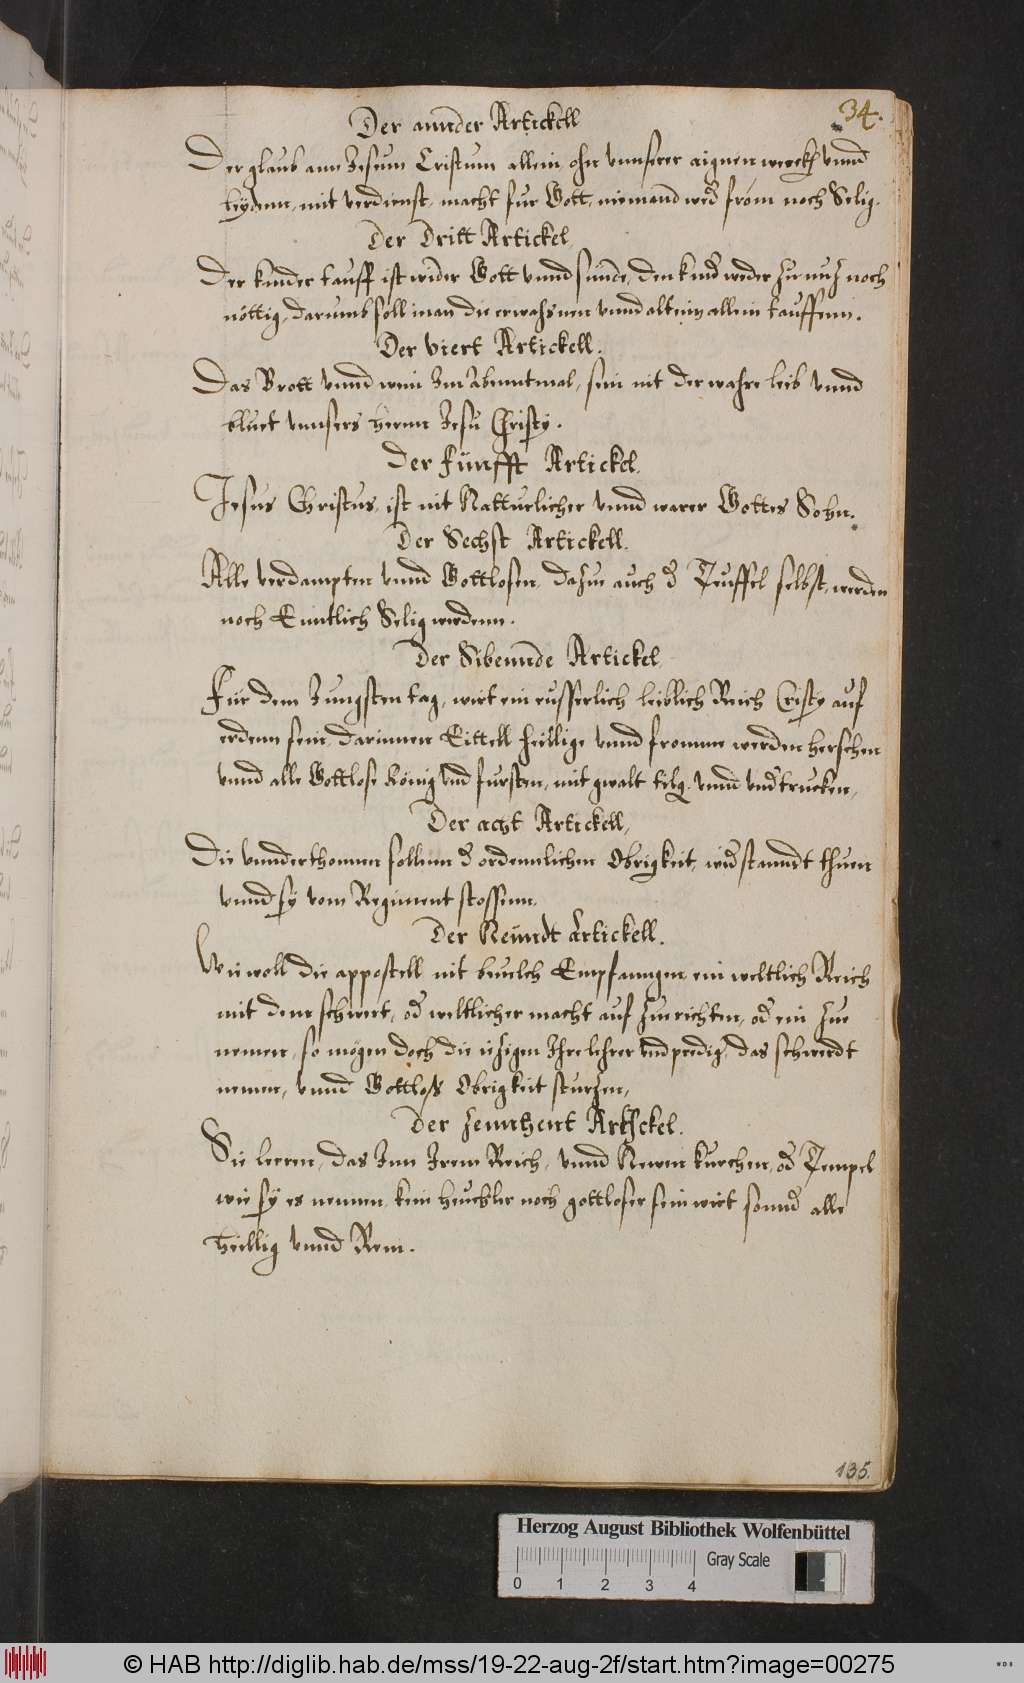 34.
Der annder Artickell
Der glaub ann Jesum Cristum allein, ohn vnnserer aignen werckh vnnd
leydenn, mit verdienst, macht fur Gott, niemand wed from noch Selig.
Der Dritt Artickel,
Der kinder tauff ist wider Gott vnnd sünde, den kind weder zu nuz noch
nöttig, darumb soll man die erwahsnen vnnd alten allein tauffenn.
Der viert Artickell.
Das Brott vnnd wein Im Abenntmal, sein nit der wahre leib vnnd
bluet vnnsers herrnn Jesu Christy.
Der fünfft Artickel.
Jesus Christus, ist nit Natturlicher vnnd warer Gottes Sohn.
Der Sechst Artickell.
Alle verdampten vnnd Gottlosen, dazu auch d Teuffel selbst, werden
noch Enntlich Selig werdenn.
Der Sibennde Artickel
Für dem Jungsten tag, wirt ein eusserlich leiblich Reich Cristy auf
erdenn sein, darinnen Eittell heillige vnnd fromme werden herschen
vnnd alle Gottlose König vnd fursten, mit gwalt tilg. vnnd vnd trucken,
Der acht Artickell,
Die vnnderthonnen sollenn d ordennlichen Obrigkeit, wid stanndt thuen
vnnd sy vom Regiment stossenn.
Der Neundt Artickell.
Wie woll die appostell nit beuelch Empfanngen ein weltlich Reich
mit dem schwert, od weltlicher macht auf zurichten, od ein zue
nemen, so mögen doch die iezigen Ihre lehrer vnd predig, das schwerdt
nemen, vnnd Gottloß Obrigkeit sturzen,
Der zennhent Artickel.
Sie leeren, das Inn Irem Reich, vnnd Newen kürchen, od Tempel
wie sy es nennen, kein heuchler noch gottloser sein wirt sonnd alle
heillig vnnd Rein.
135.
Herzog August Bibliothek Wolfenbüttel
Gray Scale
0 1 2 3 4
© HAB http://diglib.hab.de/mss/19-22-aug-2f/start.htm?image=00275